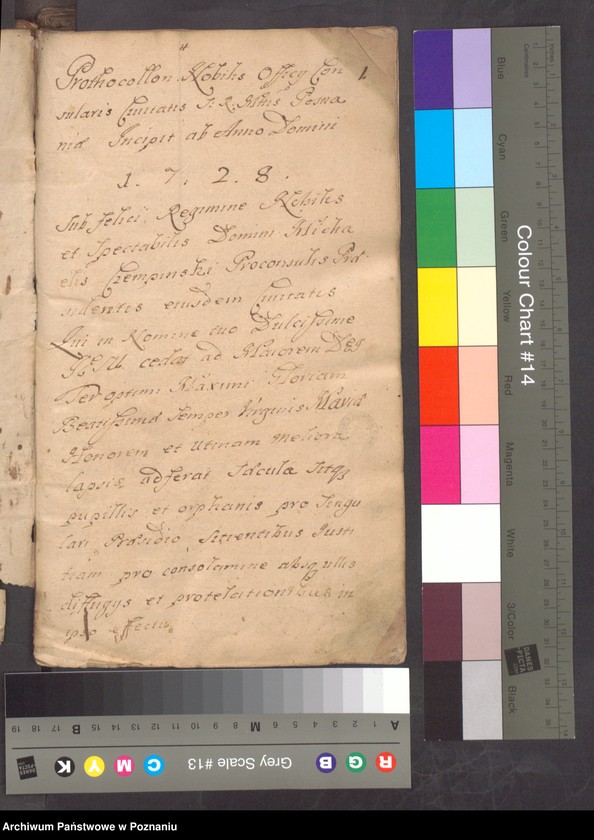 1.
Prothocollon Nobilis Officy Con
sularis Civitatis S. R. Mttis Posna
niæ Incipit ab Anno Domini
1. 7. 2. 8.
Sub felici Regimine Nobilis
et Spectabilis Domini Micha
elis Czempinski Proconsulis Præ
sidentis eiusdem Civitatis
Qui in Nomine tuo Dulcissime
cedat ad Maiorem Dei
Ter optimi Maximi Gloriam
Beatissimæ semper Virginis Mariæ
Honorem et utinam meliora
lapsis adferat Sæcula
pupillis et orphanis pro Singu
lari Præsidio Sitientibus Justi
tiam pro consolamine absq ullis
diffugys et protelationibus in
ipso effectu
Colour Chart #14
Blue
Cyan
Green
Yellow
Red
Magenta
White
3/Color
Black
Centimetres
DANES
PICTA
Grey Scale #13
R G B C M Y K
A 1 2 3 4 5 6 M 8 9 10 11 12 13 14 15 B 17 18 19
Archiwum Państwowe w Poznaniu